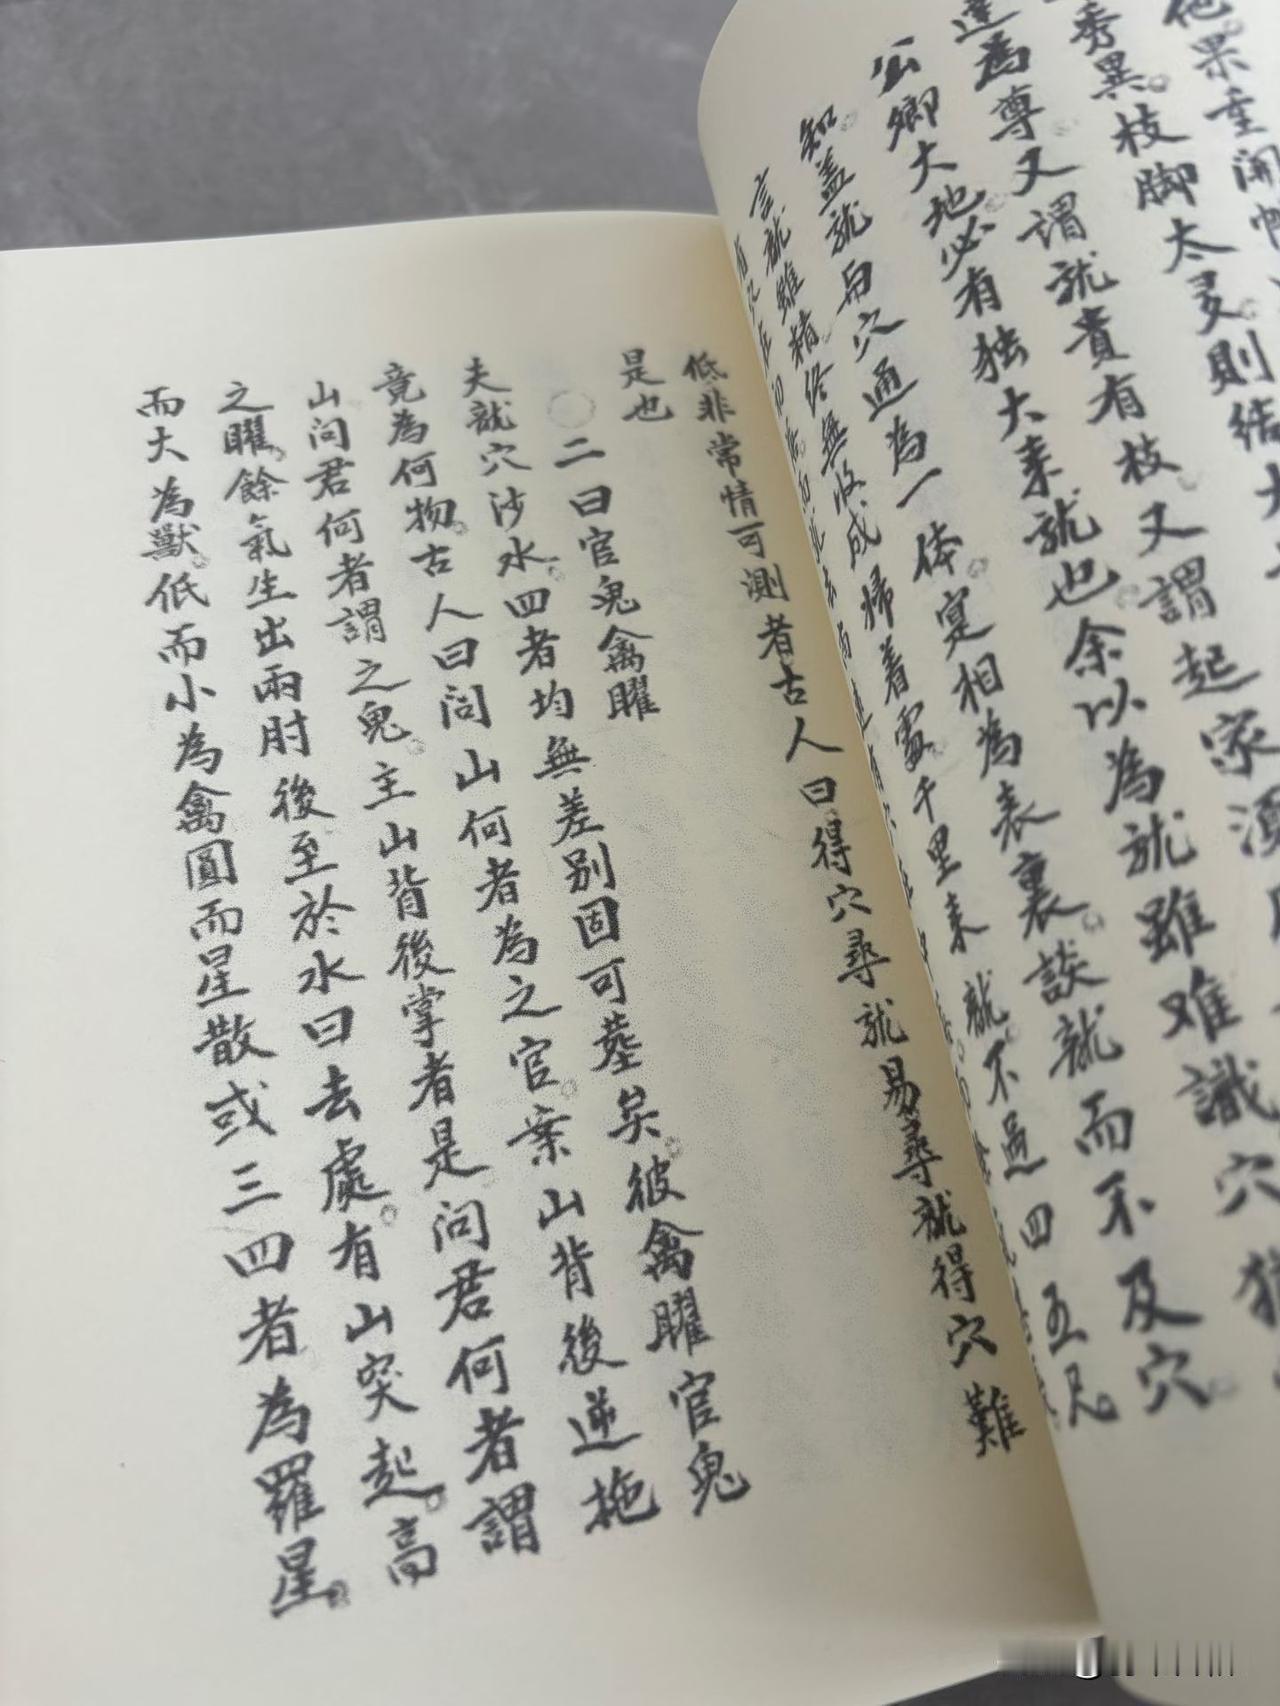 他果重開帳
秀異。枝脚太多。則結大
達為尊又謂龍貴有枝。又謂起家須
公卿大地必有独大来龍也余以為龍雖难識穴猶
知。盖龍与穴通為一体。寔相為表裏。談龍而不及穴。
言龍雖精。終無收成帰着處。千里来龍。不過四五尺
低非常情可測者古人曰。得穴尋龍易尋龍得穴難
是也
○二曰官鬼禽曜
夫龍穴沙水。四者均無差别固可葬矣。彼禽曜官鬼
竟為何物。古人曰问山何者為之官。案山背後逆拖
山问君何者謂之鬼。主山背後掌者是问君何者謂
之曜。餘氣生出兩肘後至於水曰去處。有山突起。高
而大為獸。低而小為禽圓而星散或三四者為羅星。